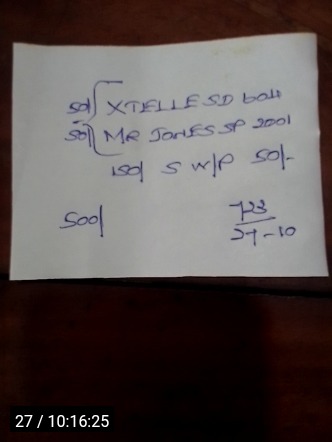 50/ XTELLE SD both
50/ MR JONES SP 2001
150/ S W/P 50/-
500/
723
27-10
27 / 10:16:25